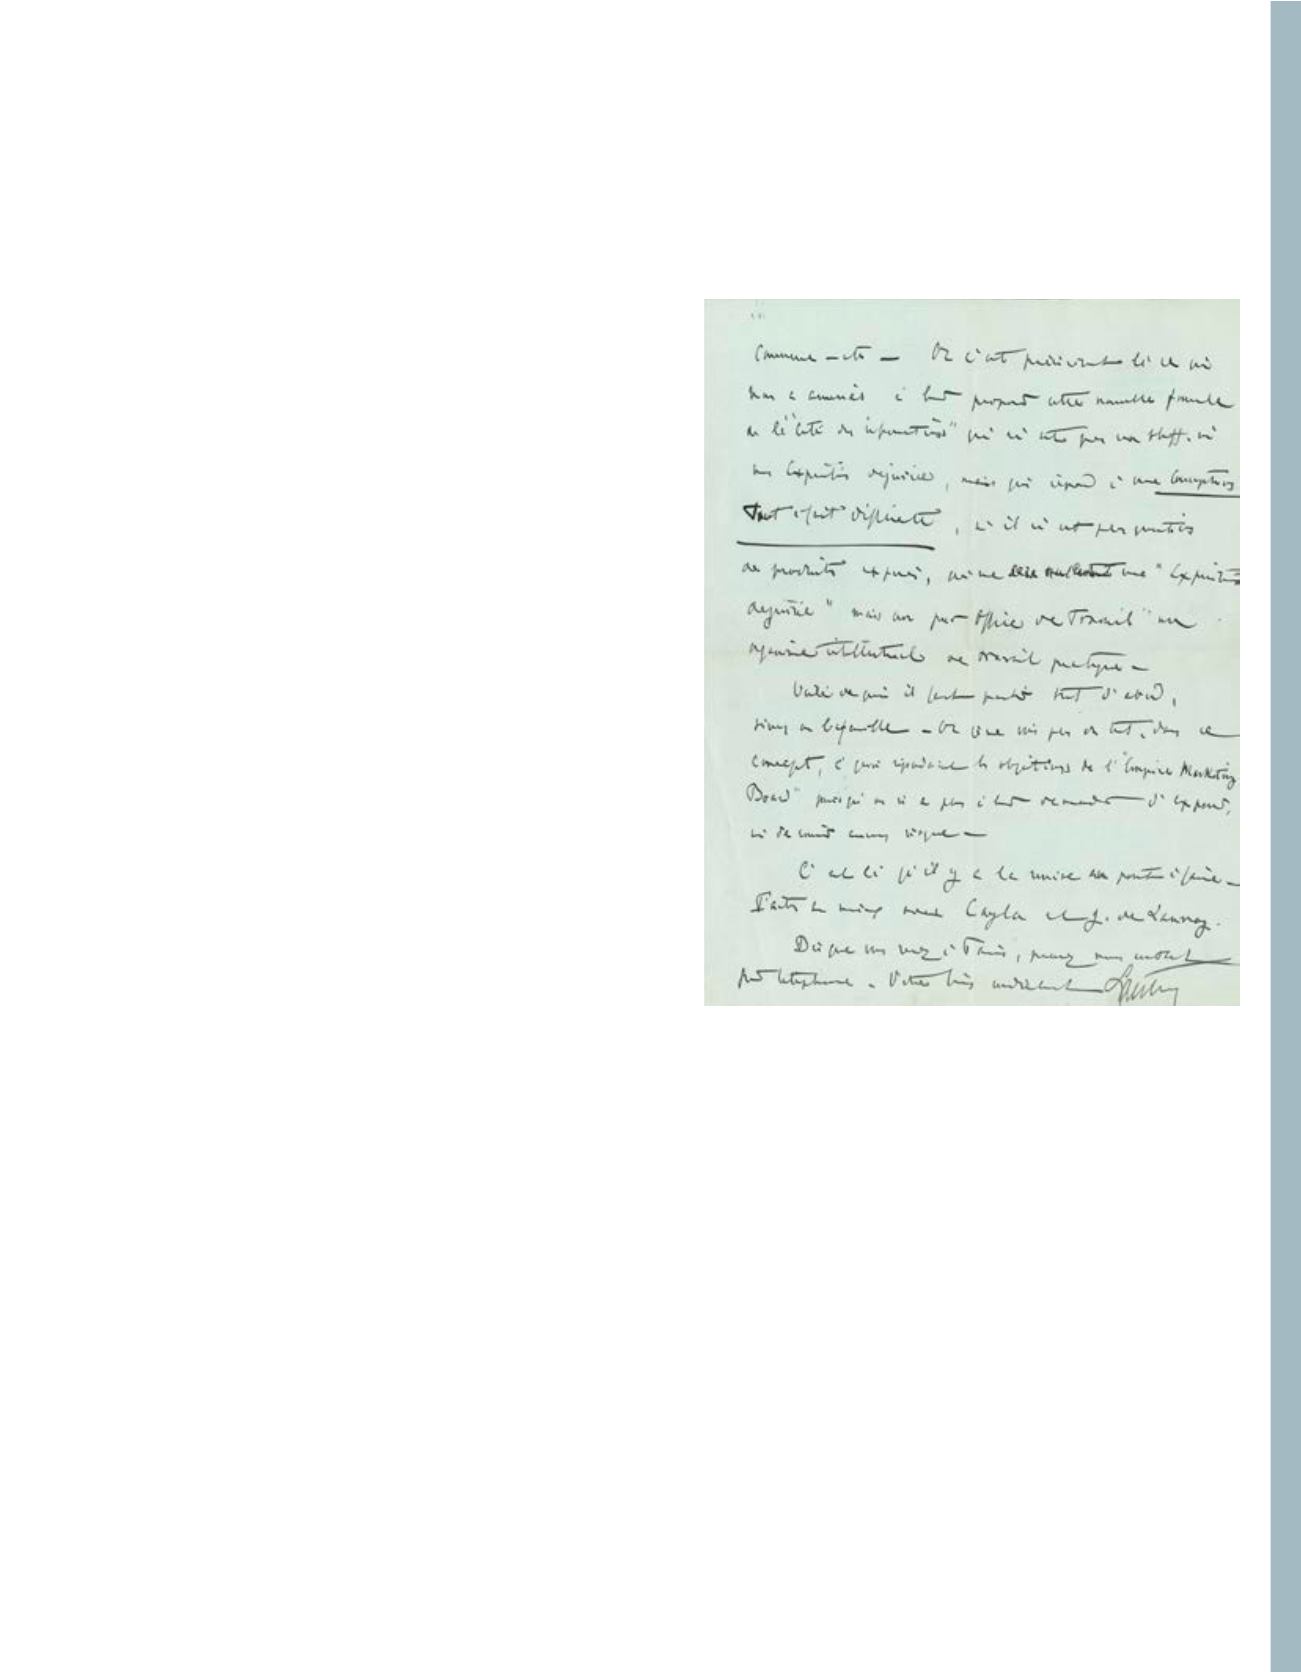 Comme — Or c'est précisément là ce qui
nous a amenés à leur proposer cette nouvelle formule
de la "Cité des informations" qui n'est pas un Staff, ni
une Exposition déguisée, mais qui répond à une conception
tout à fait différente, où il n'est pas question
de produits exposés, une "Exposition
déguisée" mais un pur Office de Travail" un
organisme intellectuel de travail pratique —
Voilà de quoi il faut partir tout d'abord,
sinon on bafouille — Or je ne vois pas du tout, dans ce
concept, à quoi répondent les objections de l'"Empire Marketing
Board" puisqu'on n'a pas à leur demander d'exposer,
ni de courir aucun risque —
C'est là qu'il y a la mise au point à faire —
Cayla et J. de Lannoy.
Dès que vous serez à Paris, prenez mon contact
par téléphone. Votre bien cordialement Lyautey